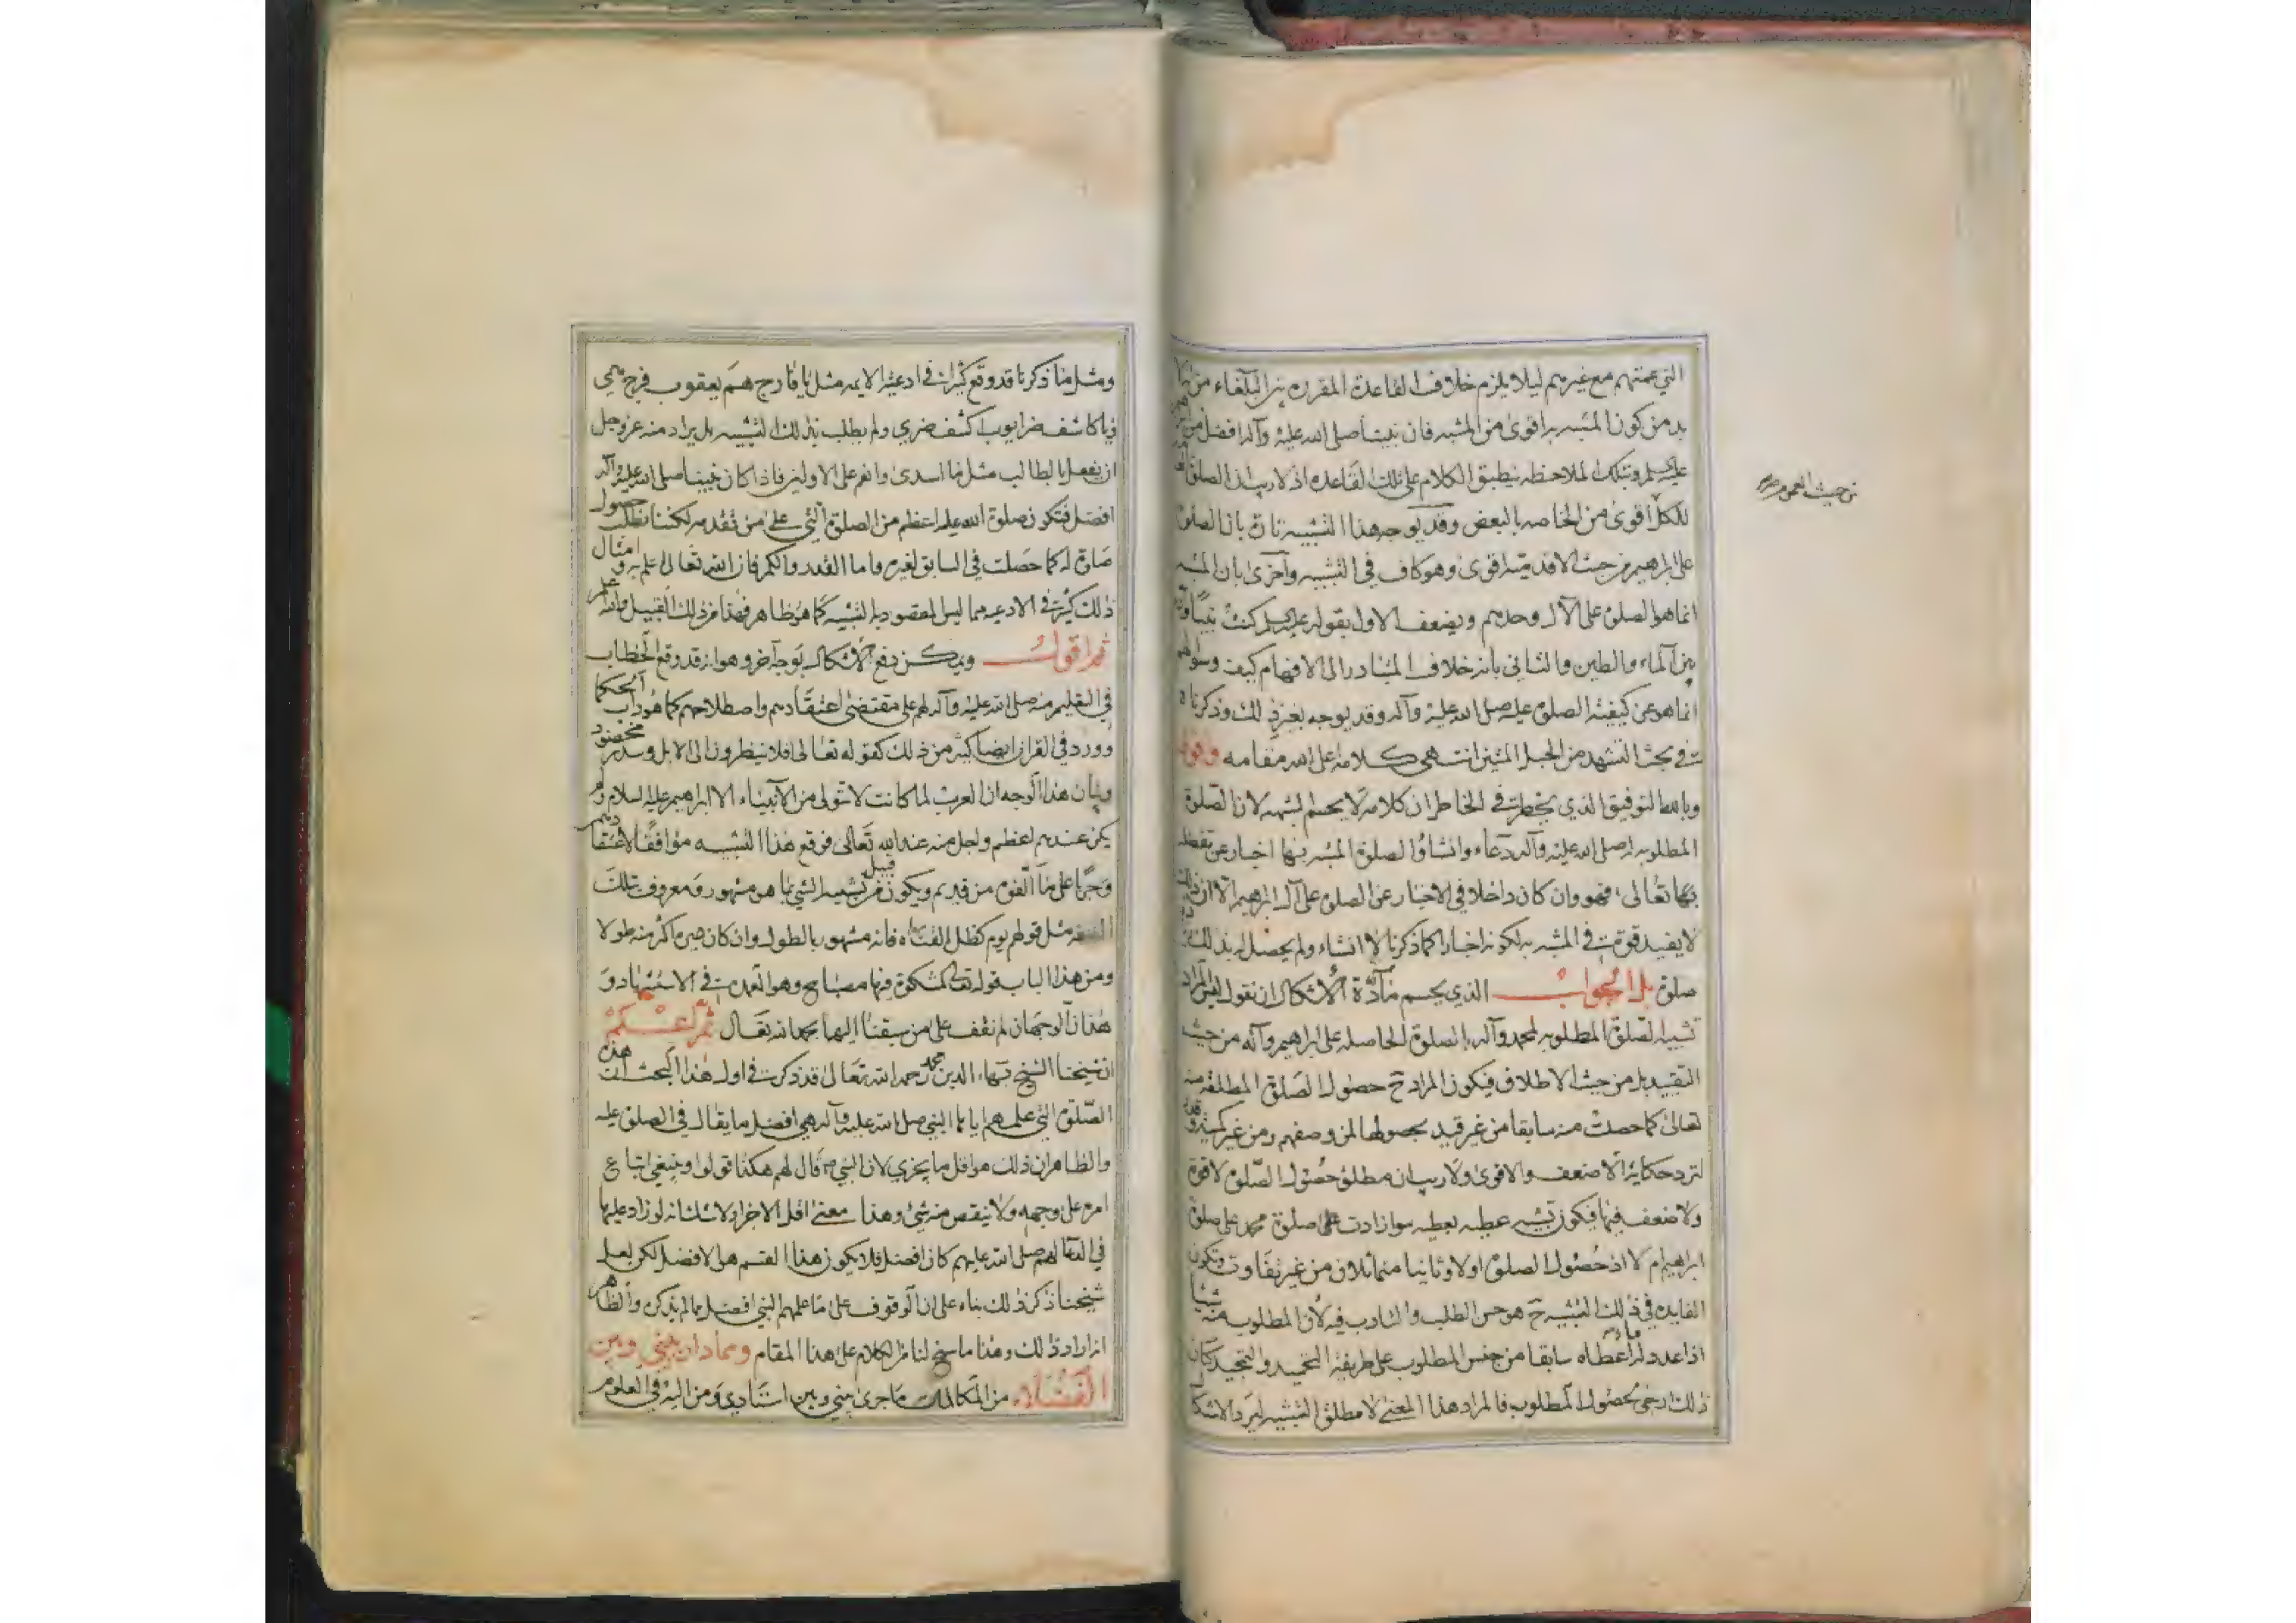 التي عمتهم مع غيرهم ليلا يلزم خلاف القاعدة المقررة بين البلغاء من انه لا
بد من كون المشبه به اقوى من المشبه فان نبينا صلى الله عليه وآله افضل من
عليه السلم وبتلك الملاحظه ينطبق الكلام على تلك القاعده اذ لا ريب ان الصلوة
من حيث العموم
للكل اقوى من الخاصه بالبعض وقد يوجه هذا التشبيه تارة بان الصلوة
على ابراهيم من حيث الاقدمية اقوى وهو كاف في التشبيه وآخرى بان المشبه
انما هو الصلوة على الآل وحدهم ويضعف الاول بقوله عليه السلم كنت نبيا وآدم
بين الماء والطين والثاني بانه خلاف المتبادر الى الافهام كيف وسؤالهم
انما هو عن كيفية الصلوة عليه صلى الله عليه وآله وقد يوجه بغير ذلك وذكرناه
في بحث التشهد من الحبل المتين انتهى كلامه على الله مقامه واقول
وبالله التوفيق الذي يخطر في الخاطر ان كلامه لا يحسم الشبهه لان الصلوة
المطلوبه له صلى الله عليه وآله دعاء وانشاؤا لصلوة المشبه بها اخبار عن تفضله
بها تعالى فهو وان كان داخلا في الاخبار عن الصلوة على آل ابراهيم الا ان ذلك
لا يفيد قوة في المشبه به لكونه اخبارا كما ذكرنا لا انشاء ولم يحصل له بذلك
صلوة بل الجواب الذي يحسم مادة الاشكال ان نقول ليس المراد
تشبيه الصلوة المطلوبه لمحمد وآله بالصلوة الحاصله على ابراهيم وآله من حيث
التقييد بل من حيث الاطلاق فيكون المراد ح حصول الصلوة المطلقه منه
تعالى كما حصلت منه سابقا من غير قيد بحصولها لمن وصفهم ومن غير كمية
لترد حكاية الاضعف والاقوى ولا ريب ان مطلق حصول الصلوة لا قوة
ولا ضعف فيها فيكون تشبيه عطيه بعطيه سوا زادت على صلوة محمد على صلوة
ابراهيم ام لا اذ حصول الصلوة اولا وثانيا متماثلان من غير تفاوت وتكون
الفايده في ذلك التشبيه ح هو حسن الطلب والتادب فيه لان المطلوب منه شيئا
اذا عدد له ما اعطاه سابقا من جنس المطلوب على طريقة التحميد والتمجيد كان
ذلك ارجى لحصول المطلوب فالمراد هذا المعنى لا مطلق التشبيه ليرد الاشكال
ومثل ما ذكرنا قد وقع كثيرا في ادعية الايمه مثل يا فارج هم يعقوب فرج همي
ويا كاشف ضر ايوب اكشف ضري ولم يطلب بذلك التشبيه بل يراد منه عز وجل
ان يفعل بالطالب مثل ما اسدى وانعم على الاولين فاذا كان نبينا صلى الله عليه وآله
افضل فتكون صلوة الله عليه اعظم من الصلوة التي على من تقدمه لكننا نطلب حصول
صلوة له كما حصلت في السابق لغيره واما القدر والكم فان الله تعالى علم به وامثال
ذلك كثيرة في الادعيه مما ليس المقصود به التشبيه كما هو ظاهر فهذا من ذلك القبيل والله اعلم
ثم اقول ويمكن دفع الاشكال بوجه آخر وهو انه قد وقع الخطاب
في التعليم منه صلى الله عليه وآله لهم على مقتضى اعتقادهم واصطلاحهم كما هو داب الحكما
وورد في القران ايضا كثير من ذلك كقوله تعالى افلا ينظرون الى الابل وسدر مخضود
وبيان هذا الوجه ان العرب لما كانت لا تتولى من الانبياء الا ابراهيم عليه السلام ولم
يكن عندهم اعظم واجل منه عند الله تعالى فوقع هذا التشبيه موافقا لاعتقادهم
وجريا على ما القوم من قديم ويكون من قبيل تشبيه الشي بما هو مشهور ومعروف بتلك
الصفه مثل قولهم يوم كظل القناه فانه مشهور بالطول وان كان غيره اكثر منه طولا
ومن هذا الباب قوله تعالى كمشكوة فيها مصباح وهو العمدة في الاستشهاد و
هذان الوجهان لم نقف على من سبقنا اليها بحمد الله تعالى ثم اعلم
ان شيخنا الشيخ بهاء الدين محمد رحمه الله تعالى قد ذكر في اول هذا البحث ان هذه
الصلوة التي علمهم اياها النبي صلى الله عليه وآله هي افضل ما يقال في الصلوة عليه
والظاهر ان ذلك هو اقل ما يجزي لان النبي ص قال لهم هكذا قولوا وينبغي اتباع
امره على وجهه ولا ينقص منه شي وهذا معنى اقل الاجزاء ولا شك انه لو زاد عليها
في الدعا لهم صلى الله عليهم كان افضل فلا يكون هذا القسم هو الافضل لكن لعل
شيخنا ذكر ذلك بناء على ان الوقوف على ما علمهم النبي افضل مما لم يذكره والظاهر
انه اراد ذلك وهذا ما سنح لنا من الكلام على هذا المقام ومما دار بيني وبين
الفضلاء من المكالمات ما جرى بيني وبين استنادي ومن اليه في العلوم